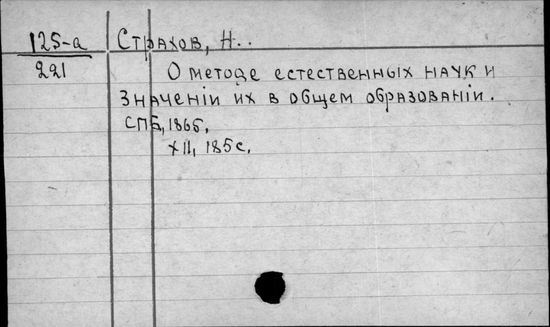 125-а Страхов, Н..
221
О методе естественных наук и
значеніи их в общем образованіи.
СПБ, 1865.
XII, 185 с.